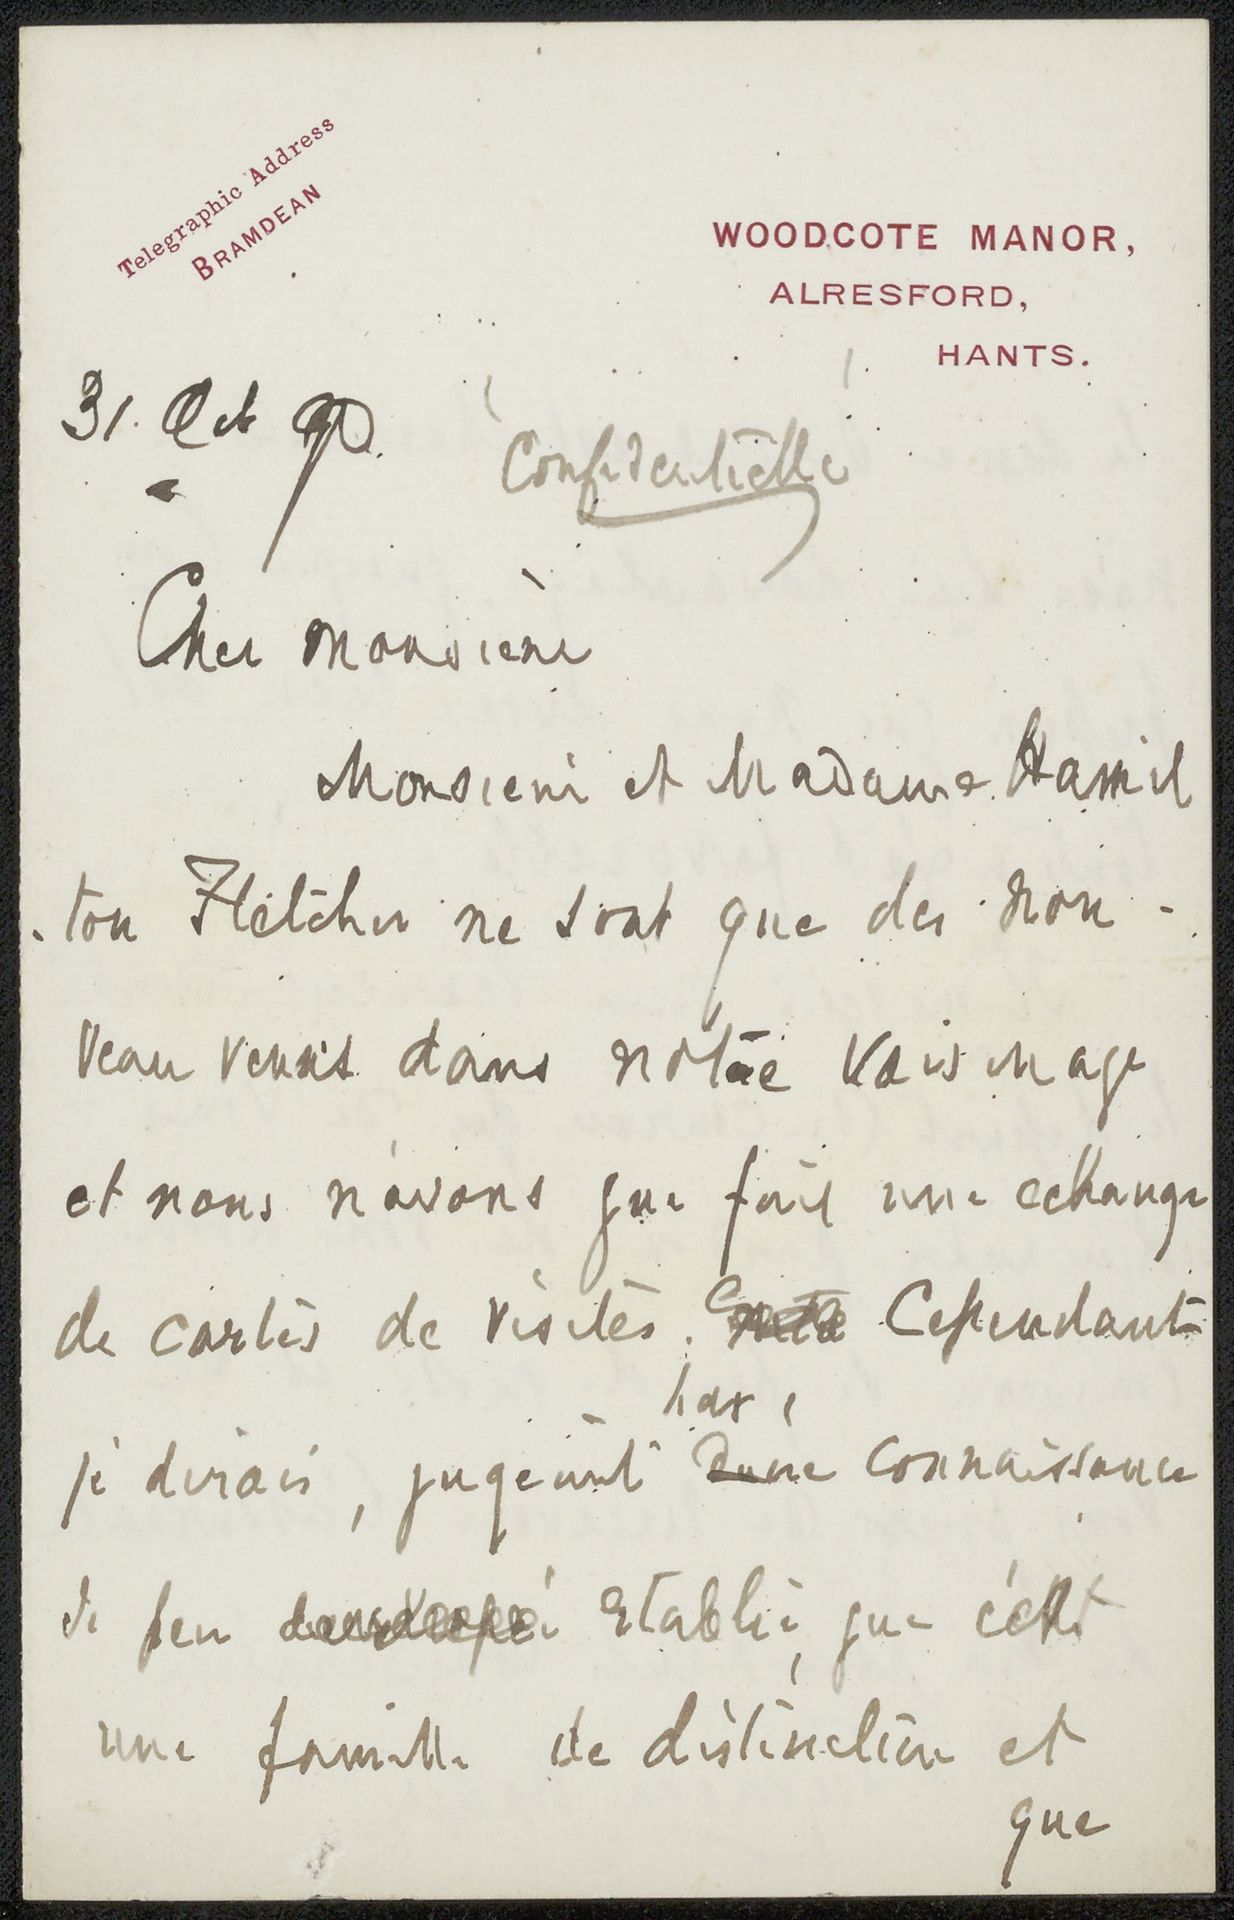 Telegraphic Address
BRAMDEAN
WOODCOTE MANOR,
ALRESFORD,
HANTS.
31. Oct 90.
Confidentielle
Cher Monsieur
Monsieur et Madame Hamil
ton Fletcher ne sont que des nou-
veau venus dans notre voisinage
et nous n'avons que fait une echange
de cartes de visites. Cependant
par
je dirais, jugeant connaissance
si peu etablie, que c'est
une famille de distinction et
que